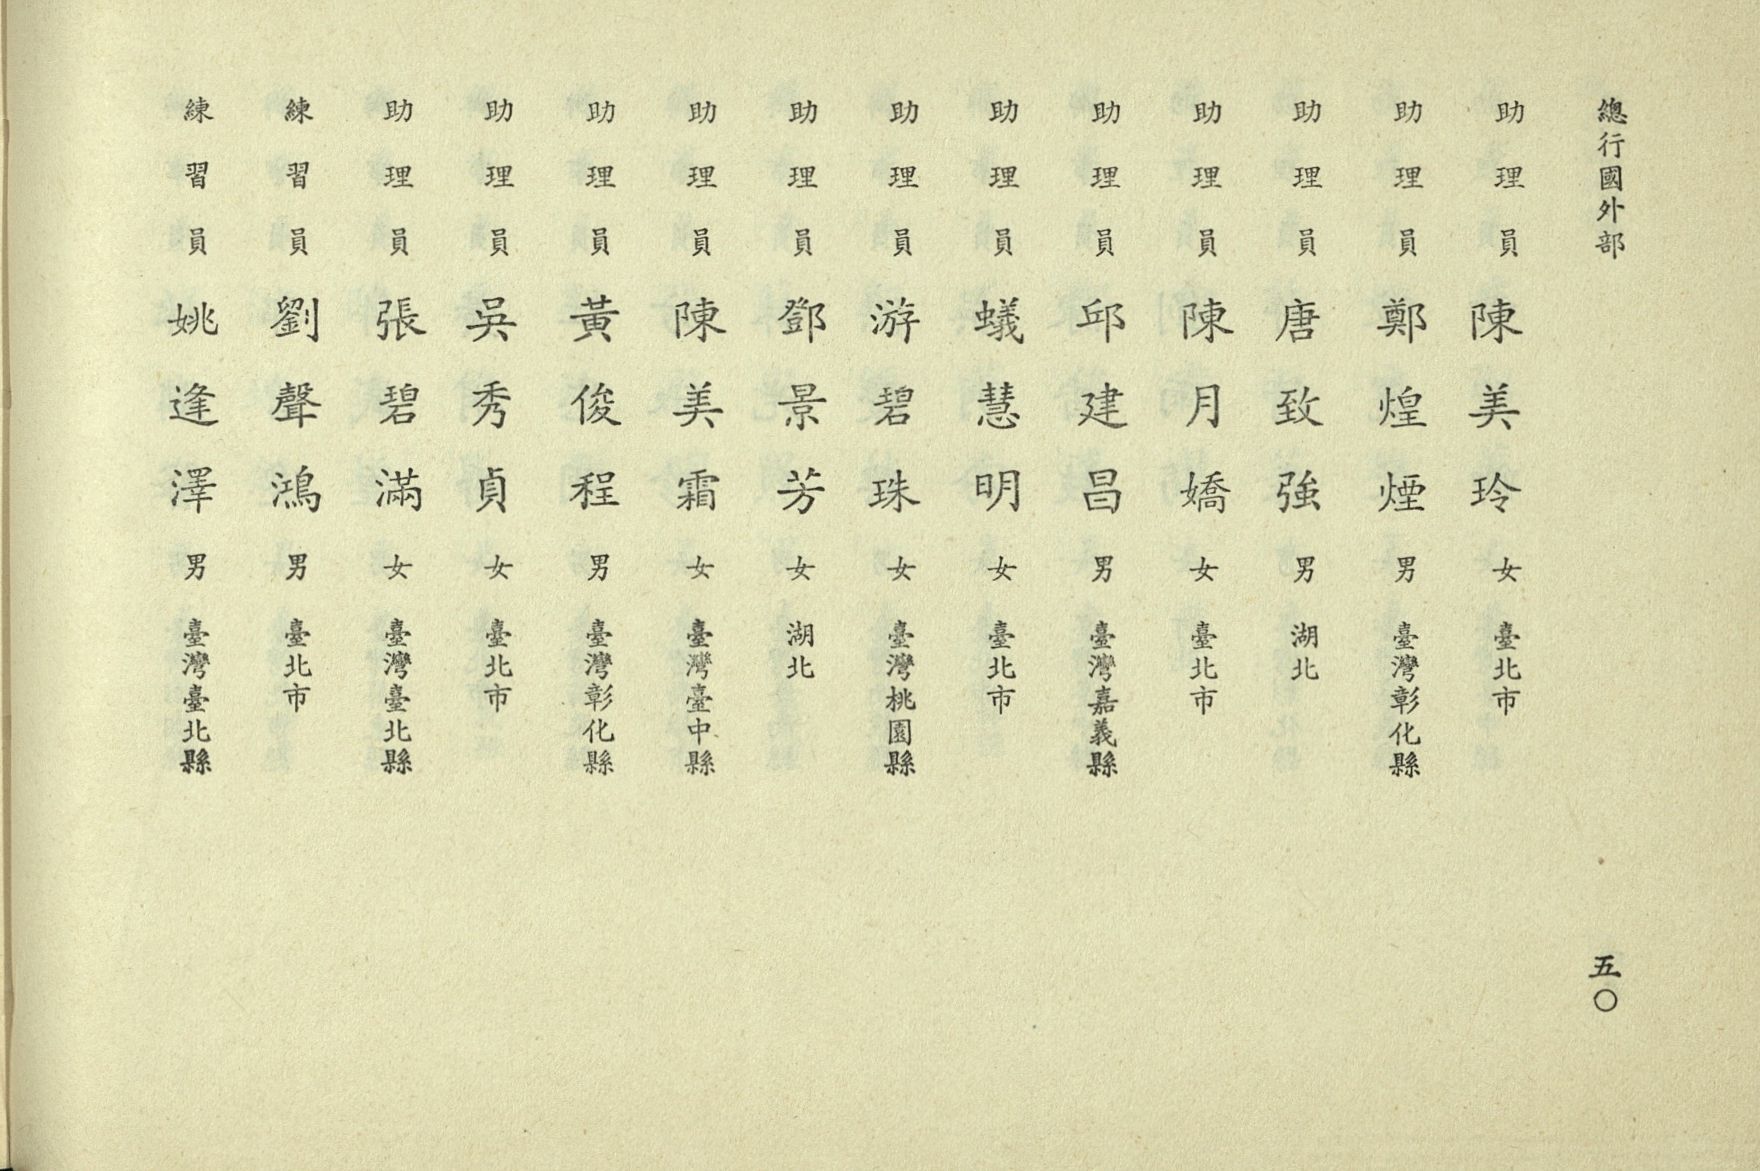 總行國外部
五〇
助理員 陳美玲 女 臺北市
助理員 鄭煌煙 男 臺灣彰化縣
助理員 唐致強 男 湖北
助理員 陳月嬌 女 臺北市
助理員 邱建昌 男 臺灣嘉義縣
助理員 蟻慧明 女 臺北市
助理員 游碧珠 女 臺灣桃園縣
助理員 鄧景芳 女 湖北
助理員 陳美霜 女 臺灣臺中縣
助理員 黃俊程 男 臺灣彰化縣
助理員 吳秀貞 女 臺北市
助理員 張碧滿 女 臺灣臺北縣
練習員 劉聲鴻 男 臺北市
練習員 姚逢澤 男 臺灣臺北縣